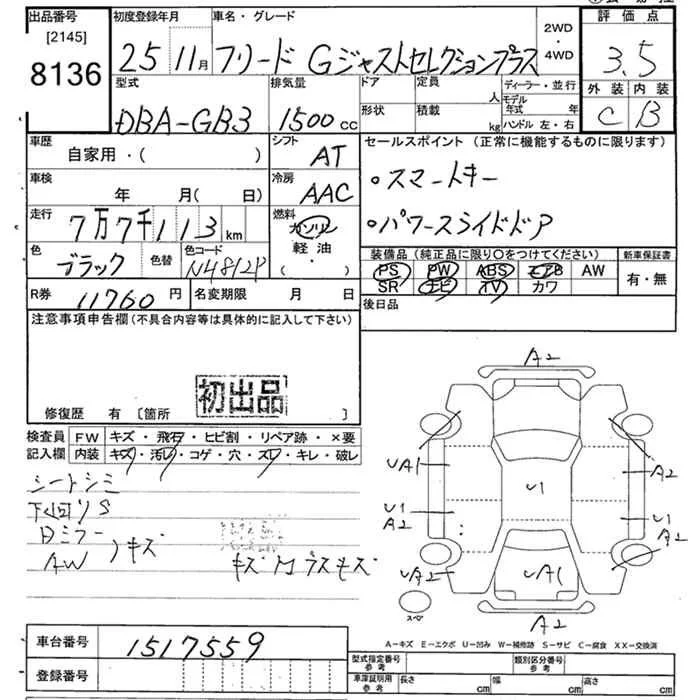 出品番号
[2145]
8136
初度登録年月
25 11月
車名・グレード
フリード Gジャストセレクションプラス
2WD
・
4WD
評価点
3.5
外装 内装
C B
型式
DBA-GB3
排気量
1500cc
ドア
形状
定員
人
積載
kg
ディーラー・並行
モデル年式 年
ハンドル 左・右
車歴
自家用・( )
シフト
AT
車検
年 月( 日)
冷房
AAC
走行
7万7千113km
燃料
ガソリン
軽油・
( )
色
ブラック
色替
色コード
R券
11760円
名変期限 月 日
セールスポイント(正常に機能するものに限ります)
・スマートキー
・パワースライドドア
装備品(純正品に限り○をつけてください)
PS PW ABS エアB AW
SR ナビ TV カワ
新車保証書
有・無
後日品
注意事項申告欄(不具合内容等は具体的に記入して下さい)
初出品
修復歴 有 [箇所 ]
検査員
記入欄
FW キズ・飛石・ヒビ割・リペア跡・×要
内装 キズ・汚レ・コゲ・穴・スレ・キレ・破レ
シートシミ
下回リS
Dミラー
AW
キズ
A2
A2
UA1
U1
A2
U1
A2
U1
A2
UA2
UA1
A2
スペア
A-キズ E-エクボ U-凹み W-補修跡 S-サビ C-腐食 XX-交換済
車台番号
1517559
登録番号
型式指定番号
参考
類別区分番号
参考
車庫証明用
参考
長さ cm
幅 cm
高さ cm